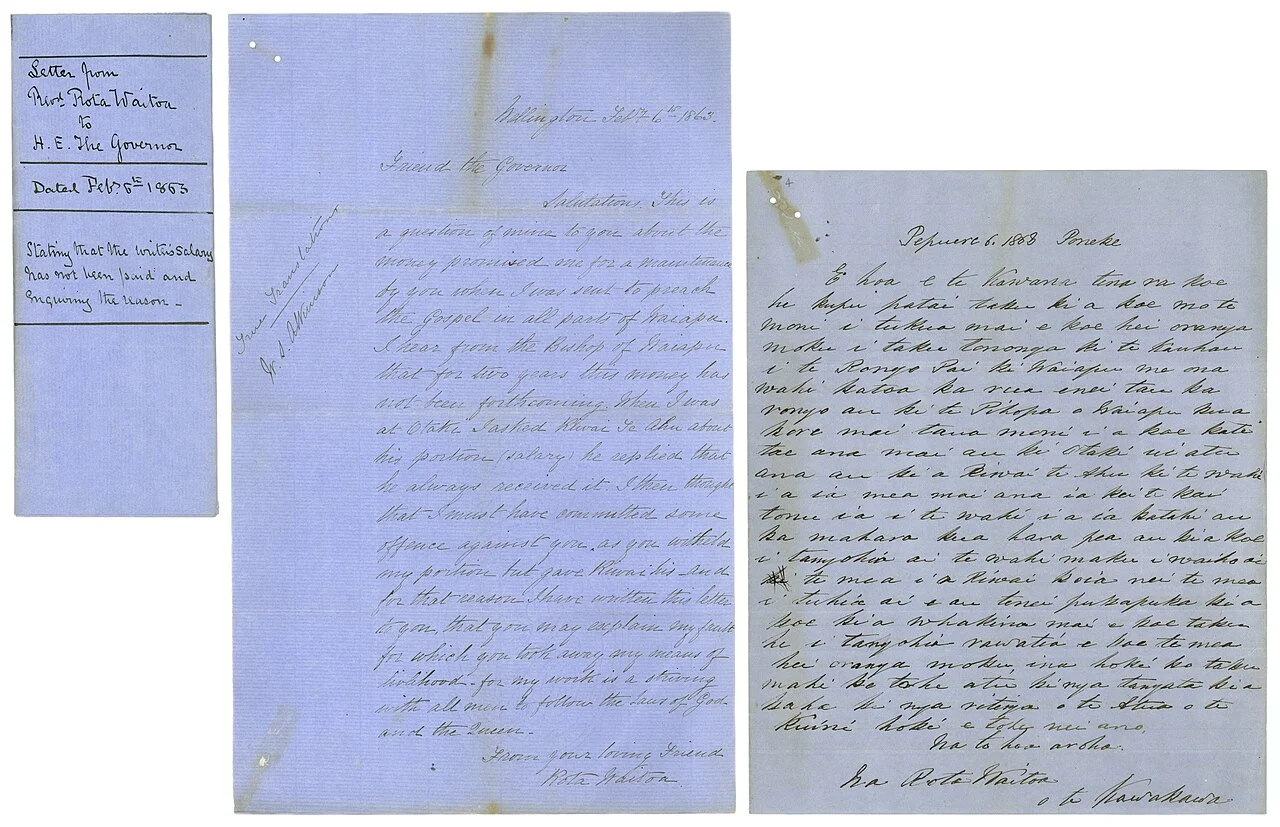 Letter from
Revd. Rota Waitoa
to
H. E. The Governor
Dated Feby. 6th 1863
Stating that the writer's salary
has not been paid and
Enquiring the reason –
Wellington Feby. 6th 1863.
Friend the Governor
Salutations. This is
a question of mine to you about the
money promised me for a maintenance
by you when I was sent to preach
the Gospel in all parts of Waiapu.
I hear from the Bishop of Waiapu
that for two years this money has
not been forthcoming. When I was
at Otaki I asked Riwai Te Ahu about
his portion (salary) he replied that
he always received it. I then thought
that I must have committed some
offence against you, as you witheld
my portion but gave Riwai his – and
for that reason I have written this letter
to you, that you may explain my fault
for which you took away my means of
livlihood – for my work is a striving
with all men to follow the laws of God
and the Queen.
From your loving Friend
Rota Waitoa
True Translation
4
Pepuere 6. 1863 Poneke
E hoa e te Kawana tena ra koe
he kupu patai taku ki a koe mo te
moni i tukua mai e koe hei oranga
moku i taku tononga ki te kauhau
i te Rongo Pai ki Waiapu me ona
wahi katoa ka rua enei tau ka
rongo au ki te Pihopa o Waiapu kua
kore mai taua moni i a koe kati
tae ana mai au ki Otaki ui atu
ana au ki a Riwai te Ahu ki te wahi
i a ia mea mai ana ia kei te kai
tonu ia i te wahi i a ia katahi au
ka mahara kua hara pea au ki a koe
i tangohia ai te wahi maku i waiho ai
te mea i a Riwai koia nei te mea
i tuhia ai e au tenei pukapuka ki a
koe kia whakina mai e koe taku
he i tangohia rawatia e koe te mea
hei oranga moku, ina hoki ko taku
mahi he tohe atu ki nga tangata kia
kaha ki nga ritenga o te Atua o te
Kuini hoki e tohe nei ano.
Na to hoa aroha.
Na Rota Waitoa
o te Kawakawa